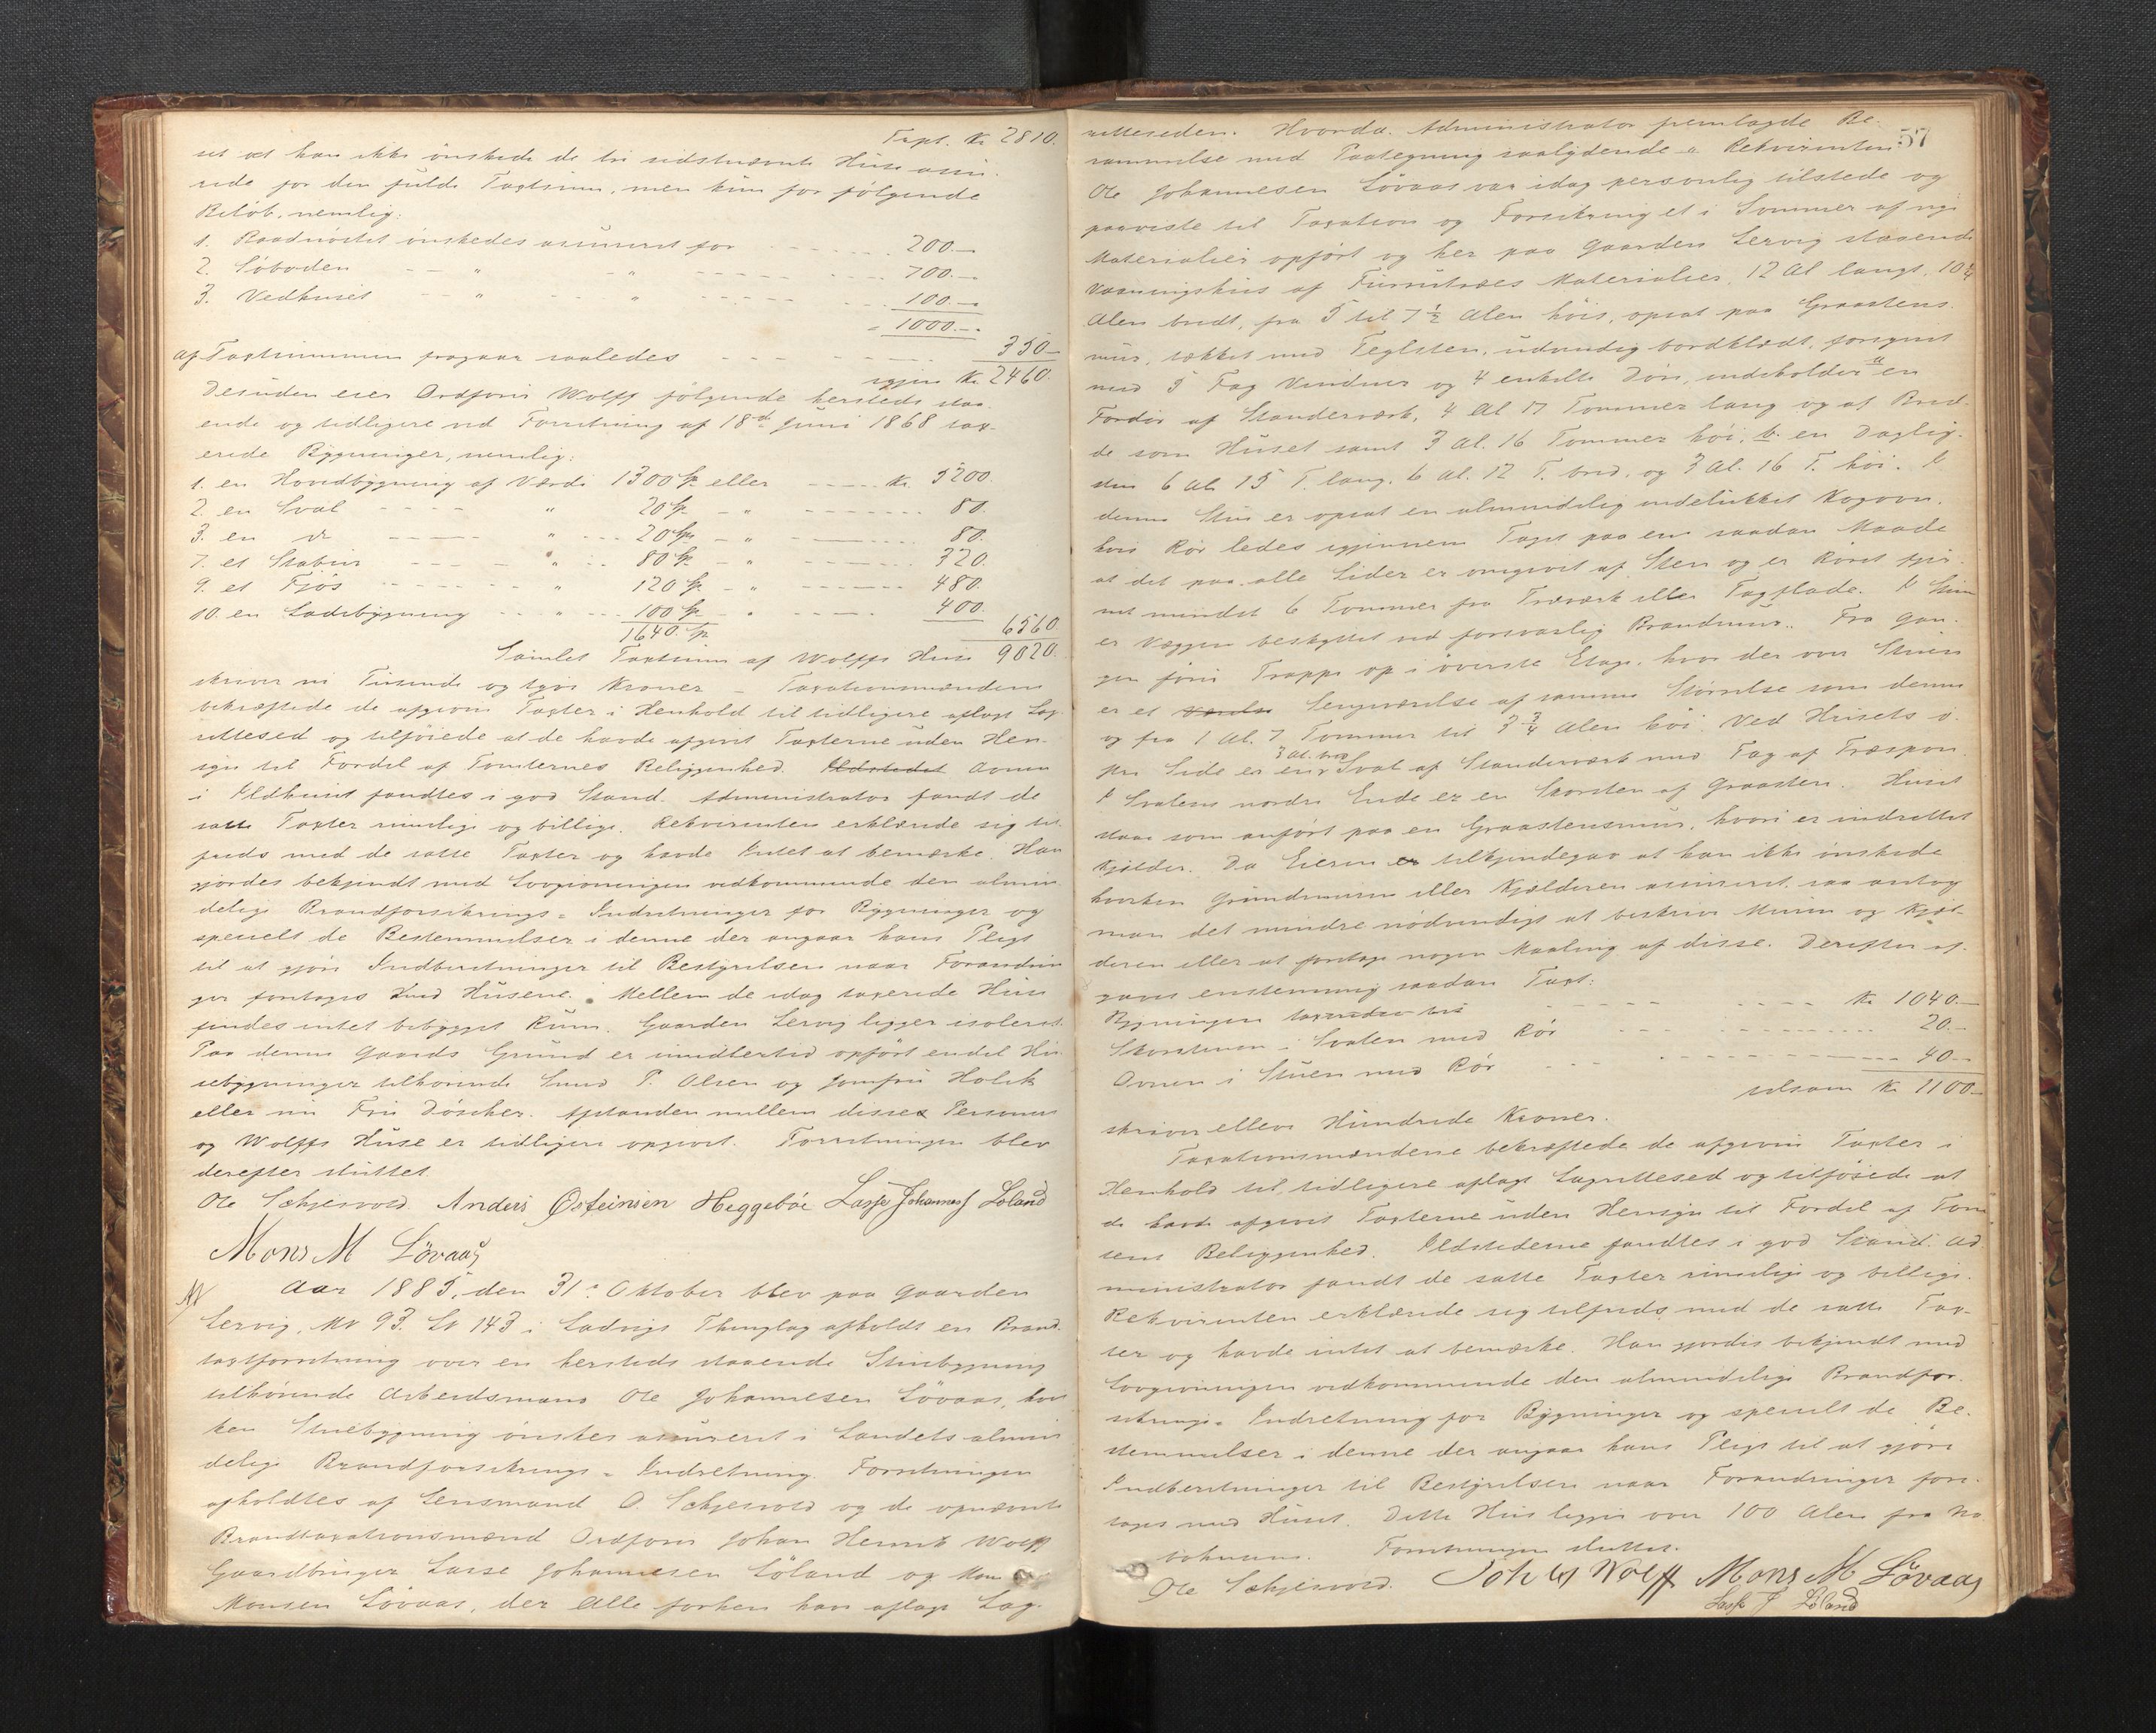 Trpt. Kr 2810.
set at han ikke ønskede de tre sidstnævnte Huse assu-
rede for den fulde Taxtsum, men kun for følgende
Beløb, nemlig:
1. Baadnøstet ønskedes assureret for 200.-
2. Søboden - " - " - 700.-
3. Vedhuset - " - " - 100.-
= 1000.-
af Taxtsummen fragaar saaledes 350-
igjen Kr. 2460.
Desuden eier Ordfører Wolff følgende hersteds staa-
ende og tidligere ved Forretning af 18de Juni 1868 tax-
erede Bygninger, nemlig:
1. en Hovedbygning af Værdi 1300 Sp. eller Kr. 5200.
2. en Sval " 20 Sp. - " 80.
3. en do " 20 Sp. - " 80.
7. et Stabur " 80 Sp. - " 320.
9. et Fjøs " 120 Sp. - " 480.
10. en Ladebygning " 100 Sp. " 400.
1640. Sp. 6560.
Samlet Taxtsum af Wolffs Huse 9020.
skriver ni Tusinde og tyve Kroner - Taxationsmændene
bekræftede de afgivne Taxter i Henhold til tidligere aflagt Lag-
rettesed og tilføiede at de havde afgivet Taxterne uden Hen-
syn til Fordel af Tomternes Beliggenhed. Ildstedet Ovnen
i Ildhuset fandtes i god Stand. Administrator fandt de
satte Taxter rimelige og billige. Rekvirenten erklærede sig til-
freds med de satte Taxter og havde Intet at bemærke. Han
gjordes bekjendt med Lovgivningen vedkommende den almin
delige Brandforsikrings= Indretninger for Bygninger og
specielt de Bestemmelser i denne der angaar hans Pligt
til at gjøre Indberetninger til Bestyrelsen naar Forandrin
ger foretages med Husene. Mellem de idag taxerede Huse
findes intet bebygget Rum. Gaarden Lervig ligger isoleret.
Paa denne Gaards Grund er imidlertid opført endel Hu
sebygninger tilhørende Lund P. Olsen og Jomfru Holck
eller nu Fru Döscher. Afstanden mellem disse Personers
og Wolffs Huse er tidligere opgivet. Forretningen blev
derefter sluttet.
Ole Schjesvold. Anders Østeinsen Heggebøe Lasse Johannesf Løland
Mons M Lövaas
Aar 1885, den 31te Oktober blev paa Gaarden
Lervig, Mn 93. Ln 143 i Ladvigs Thinglag afholdt en Brand-
taxtforretning over en hersteds staaende Stuebygning
tilhørende Arbeidsmand Ole Johannesen Lövaas, hvil
ken Stuebygning ønskes assureret i Landets almin
delige Brandforsikrings = Indretning. Forretningen
afholdtes af Lensmand O. Schjesvold og de opnævnte
Brandtaxationsmænd Ordfører Johan Henrik Wolff
Gaardbruger Lasse Johannesen Löland og Mons
Monsen Lövaas, der alle forhen har aflagt Lag-
57
retteseden. Hvorda. Administrator fremlagde Be-
rammelse med Paategning saalydende = Rekvirenten
Ole Johannesen Lövaas var idag personlig tilstede og
paaviste til Taxation og Forsikring et i Sommer af nye
Materialier opført og her paa Gaarden Lervig staaende
Vaaningshus af Furutræes Materialier, 12 Al langt, 10 1/4
Alen bredt, fra 5 til 7 1/2 Alen høit, opsat paa Graastens
mur, tækket med Teglsten, udvendig bordklædt, forsynet
med 5 Fag Vinduer og 4 enkelte Døre, indeholder a. en
Fordør af Standerværk, 4 Al 17 Tommer lang og af Bred-
de som Huset samt 3 Al. 16 Tommer høi, b. en Daglig-
stue 6 Al 15 T. lang, 6 Al. 12 T. bred, og 3 Al. 16 T. høi. I
denne Stue er opsat en almindelig indelukket Kogovn,
hvis Rør ledes igjennem Taget paa en saadan Maade
at det paa alle Sider er omgivet af Sten og er Røret fjer-
net mindst 6 Tommer fra Træværk eller Tagflade. I Stuen
er Væggen beskyttet ved forsvarlig Brandmur. Fra Gan-
gen fører Trappe op i øverste Etage, hvor der over Stuen
er et Værelse Sengeværelse af samme Størrelse som denne
og fra 1 Al. 7 Tommer til 3 3/4 Alen høi. Ved Husets ø-
3 Al. bred
stre Side er en Sval af Standerværk med Tag af Træspon.
I Svalens nordre Ende er en Skorsten af Graasten. Huset
staar som anført paa en Graastensmur, hvori er indrettet
Kjelder. Da Eieren er tilkjendegav at han ikke ønskede
hverken Grundmuren eller Kjælderen assureret, saa antog
man det mindre nødvendigt at beskrive Muren og Kjæl-
deren eller at foretage nogen Maaling af disse. Derefter af-
gaves enstemmig saadan Taxt:
Bygningen Kr 1040.-
Skorstenen i Svalen med Rør 20.-
Ovnen i Stuen med Rør 40-
tilsam Kr 1100-
skriver elleve Hundrede Kroner.
Taxationsmændene bekræftede de afgivne Taxter i
Henhold til tidligere aflagt Lagrettesed og tilføiede at
de havde afgivet Taxterne uden Hensyn til Fordel af Tom
tens Beliggenhed. Ildstederne fandtes i god Stand. Ad
ministrator fandt de satte Taxter rimelige og billige.
Rekvirenten erklærede sig tilfreds med de satte Tax-
ter og havde intet at bemærke. Han gjordes bekjendt med
Lovgivningen vedkommende den almindelige Brandfor-
sikrings= Indretning for Bygninger og specielt de Be-
stemmelser i denne der angaar hans Pligt til at gjøre
Indberetninger til Bestyrelsen naar Forandringer fore-
tages med Huset. Dette Hus ligger over 100 Alen fra Na
bohusene. Forretningen sluttet.
Ole Schjesvold. Joh W Wolff Mons M Lövaas
Lasse J Löland